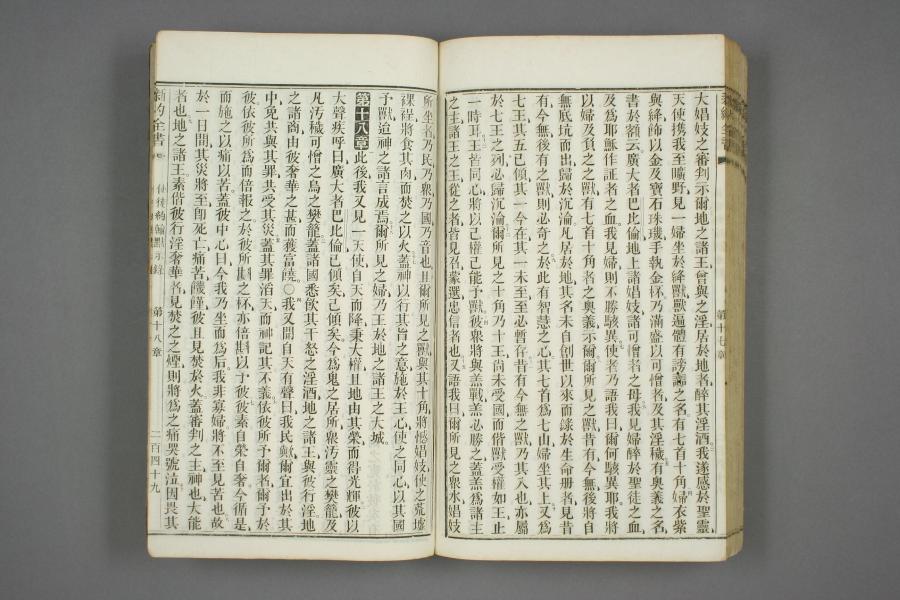 大娼妓之審判示爾地之諸王曾與之淫居於地者醉其淫酒我遂感於聖靈
天使攜我至曠野見一婦坐於絳獸獸遍體有謗讟之名有七首十角婦衣紫
與絳飾以金及寶石珠璣手執金杯乃滿盛以可憎者及其淫穢有奧義之名
書於額云廣大者巴比倫地上諸娼妓諸可憎者之母我見婦醉於聖徒之血
及為耶穌作証者之血我見婦則不勝駭異使者乃語我曰爾何駭異耶我將
以婦及負之之獸有七首十角者之奧義示爾爾所見之獸昔有今無後將自
無底坑而出歸於沉淪凡居於地其名未自創世以來而錄於生命册者見昔
有今無後有之獸則必奇之於此有智慧之心其七首為七山婦坐其上又為
七王其五已傾其一今在其一未至至必暫存昔有今無之獸乃其八也亦屬
於七王之列必歸沉淪爾所見之十角乃十王尚未受國而偕獸受權如王止
一時耳王皆同心將以己權己能予獸彼眾將與羔戰羔必勝之蓋羔為諸主
之主諸王之王從之者皆見召蒙選忠信者也又語我曰爾所見之眾水娼妓
第十七章
所坐者乃民乃眾乃國乃音也且爾所見之獸與其十角將憾娼妓使之荒墟
裸裎將食其肉而焚之以火蓋神以行其旨之意施於王心使之同心以其國
予獸迨神之諸言成焉爾所見之婦乃王於地之諸王之大城
第十八章 此後我又見一天使自天而降秉大權且地由其榮而得光輝彼以
大聲疾呼曰廣大者巴比倫已傾矣已傾矣今為鬼之居所眾汚靈之樊籠及
凡汚穢可憎之鳥之樊籠蓋諸國悉飲其干怒之淫酒地之諸王與彼行淫地
之諸商由彼奢華之甚而獲富饒○我又聞自天有聲曰我民歟爾宜出於其
中免共與其罪共受其災蓋其罪滔天而神記其不義依彼所予爾者爾予於
彼依彼所為而倍報之於彼所斟之杯亦倍斟以予彼彼素自榮自奢今循是
而施之以痛以苦蓋彼中心曰今我乃坐而為后我非寡婦將不至見苦也故
於一日間其災將至卽死亡痛苦饑饉彼且見焚於火蓋審判之主神也大能
者也地之諸王素偕彼行淫奢華者見焚之之煙則將為之痛哭號泣因畏其
新約全書
使徒約翰默示錄
第十八章
二百四十九